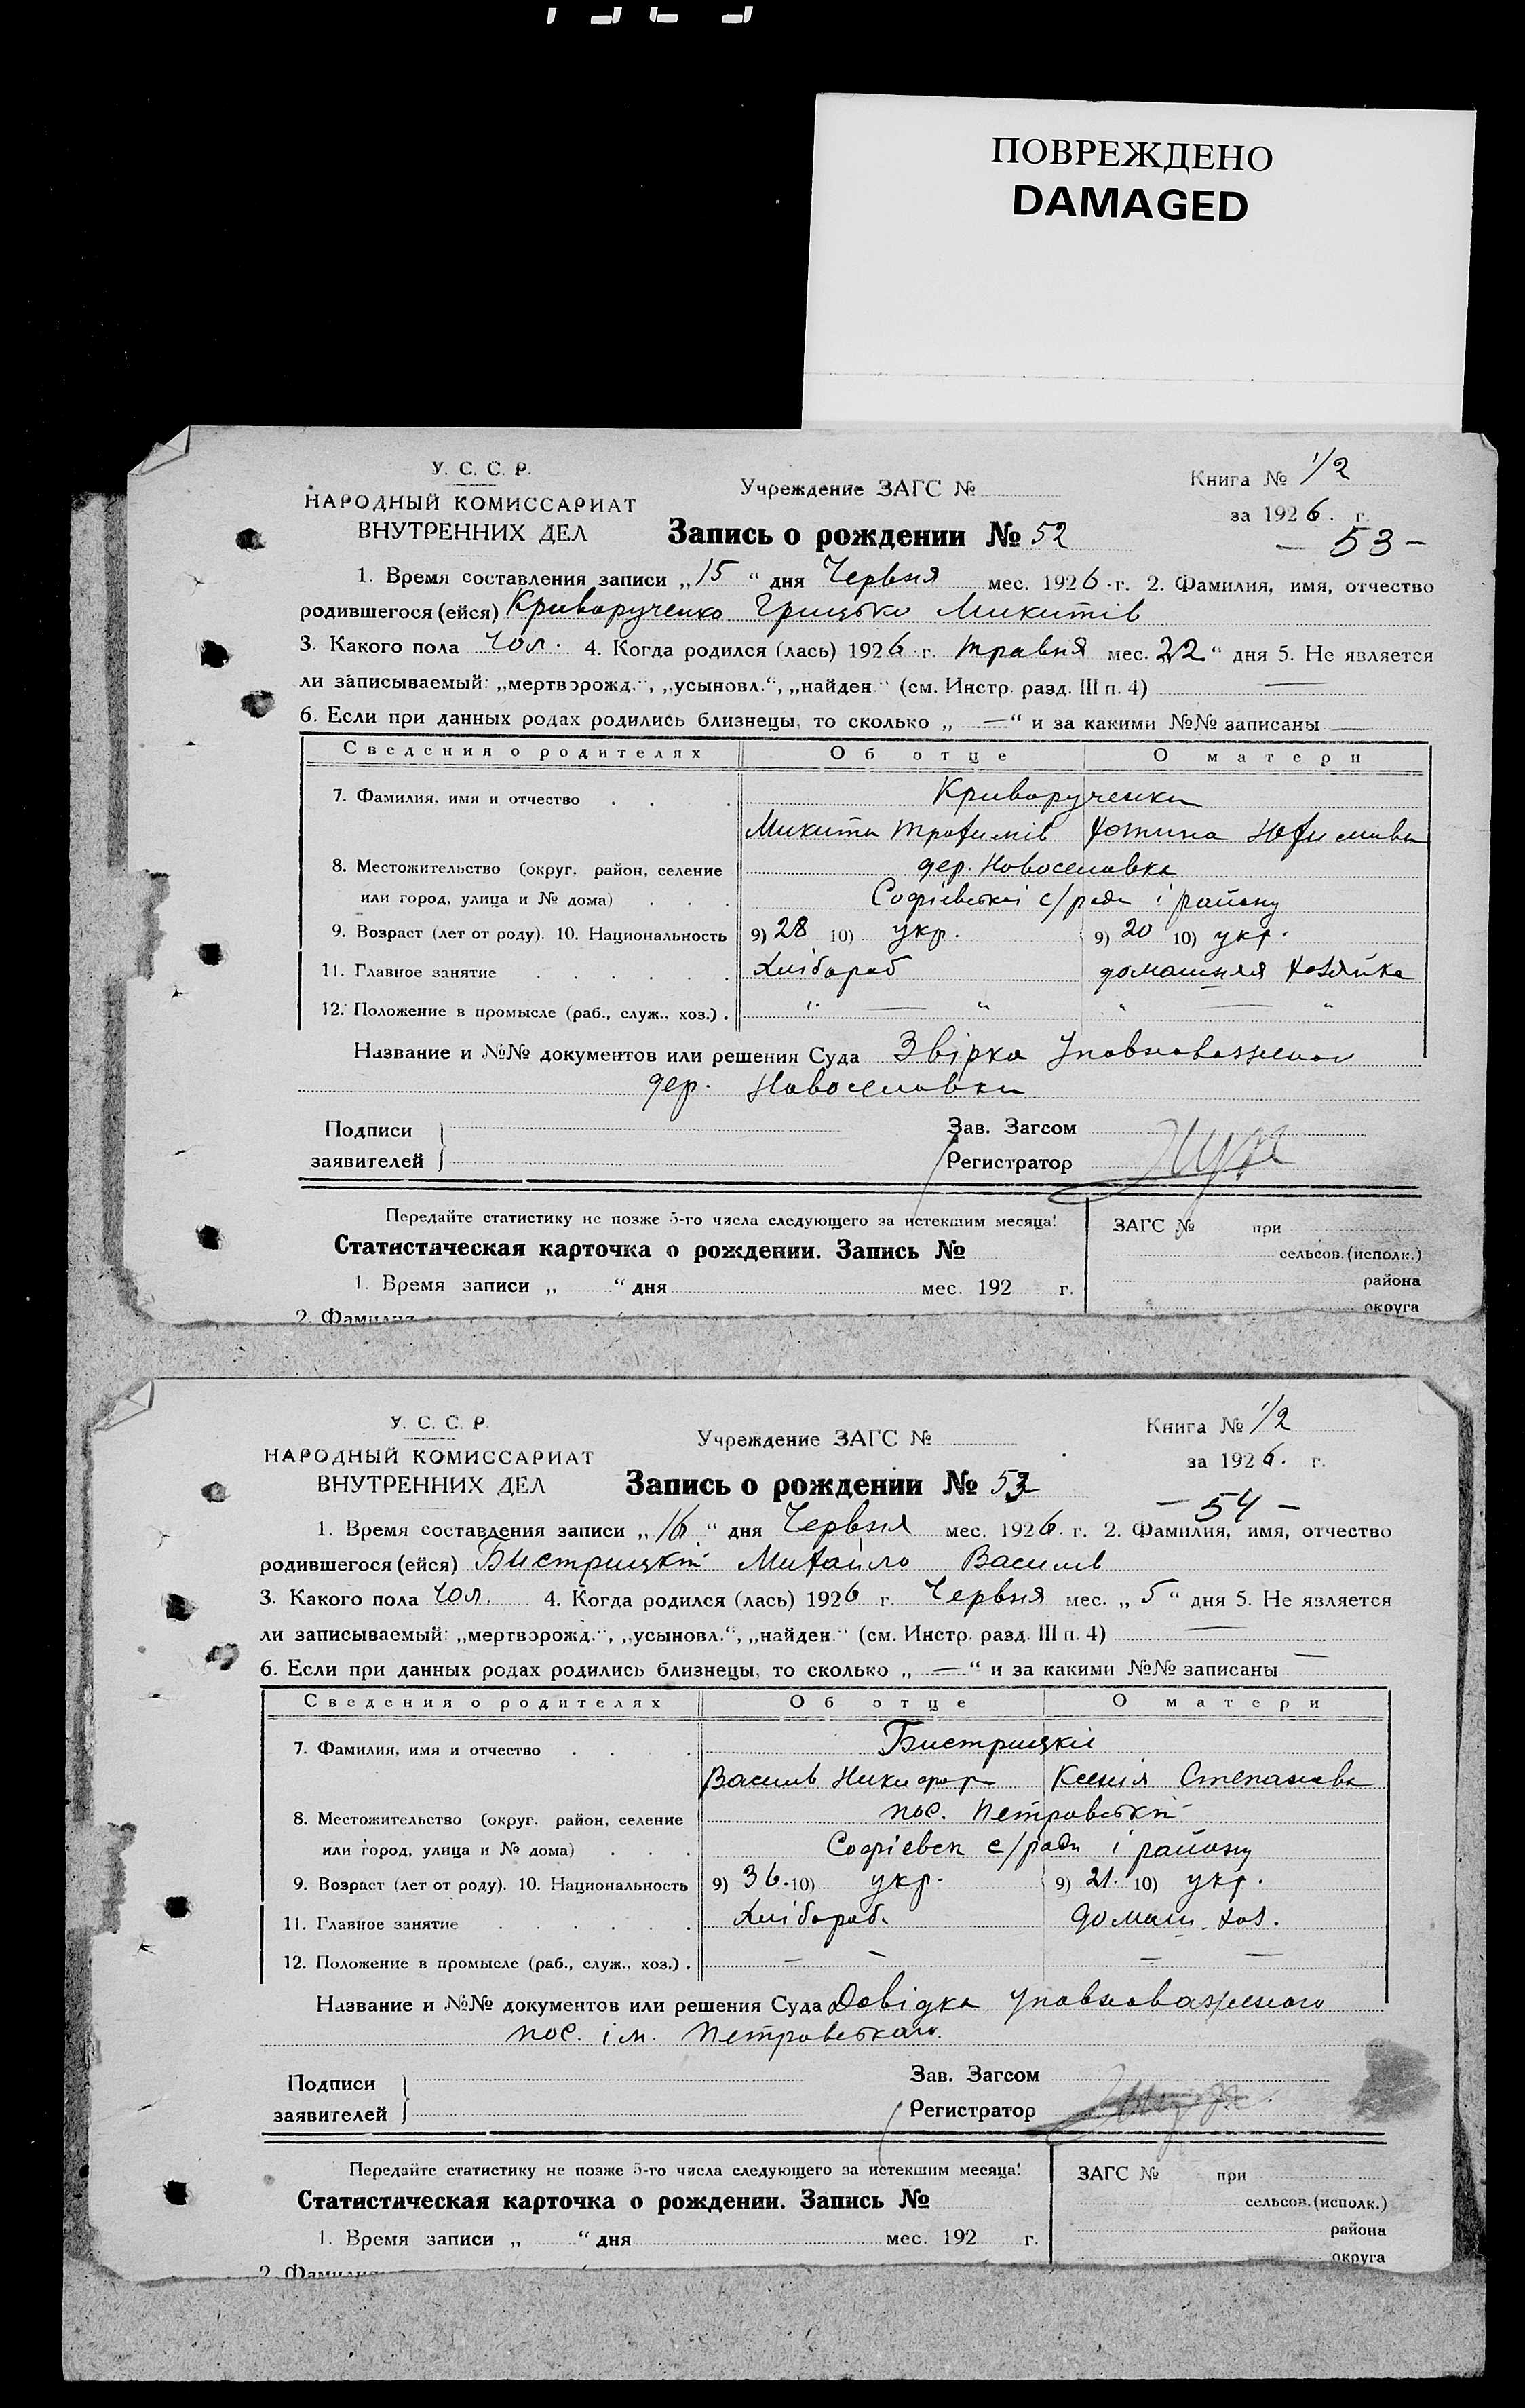 ПОВРЕЖДЕНО
DAMAGED
У. С. С. Р.
НАРОДНЫЙ КОМИССАРИАТ
ВНУТРЕННИХ ДЕЛ
Учреждение ЗАГС №
Книга № 1/2
за 1926. г.
Запись о рождении № 52
— 53 —
1. Время составления записи „15“ дня Червня мес. 1926. г. 2. Фамилия, имя, отчество
родившегося (ейся) Криворученко Грицько Микитів
3. Какого пола чол. 4. Когда родился (лась) 1926. г. травня мес. „22“ дня 5. Не является
ли записываемый: „мертворожд.“, „усыновл.“, „найден“ (см. Инстр. разд. III п. 4) —
6. Если при данных родах родились близнецы, то сколько „—“ и за какими №№ записаны —
Сведения о родителях Об отце О матери
7. Фамилия, имя и отчество . . . Криворученки
Микита Трофимів
8. Местожительство (округ, район, селение дер. Новоселовка
или город, улица и № дома) . . . Софіевської с/ради і району
9. Возраст (лет от роду). 10. Национальность 9) 28 10) укр. 9) 20 10) укр.
11. Главное занятие . . . . . . Хлібороб домашняя хозяйка
12. Положение в промысле (раб., служ., хоз.) . “ — “ “ — “
Название и №№ документов или решения Суда Звірка
дер. Новоселовки
Подписи
заявителей
Зав. Загсом
Регистратор
Передайте статистику не позже 5-го числа следующего за истекшим месяца!
Статистическая карточка о рождении. Запись №
1. Время записи „ “ дня мес. 192 г.
2. Фамилия
ЗАГС № при
сельсов. (исполк.)
района
округа
У. С. С. Р.
НАРОДНЫЙ КОМИССАРИАТ
ВНУТРЕННИХ ДЕЛ
Учреждение ЗАГС №
Книга № 1/2
за 1926. г.
Запись о рождении № 53
— 54 —
1. Время составления записи „16“ дня Червня мес. 1926. г. 2. Фамилия, имя, отчество
родившегося (ейся) Бистрицкій Михайло Василів
3. Какого пола чол. 4. Когда родился (лась) 1926 г. Червня мес. „5“ дня 5. Не является
ли записываемый: „мертворожд.“, „усыновл.“, „найден“ (см. Инстр. разд. III п. 4) —
6. Если при данных родах родились близнецы, то сколько „—“ и за какими №№ записаны —
Сведения о родителях Об отце О матери
7. Фамилия, имя и отчество . . . Бистрицкі
Василь Никифор Ксенія Степанова
8. Местожительство (округ, район, селение пос. Петровській
или город, улица и № дома) . . . Софіевск с/ради і району
9. Возраст (лет от роду). 10. Национальность 9) 36. 10) укр. 9) 21. 10) укр.
11. Главное занятие . . . . . . Хлібороб. домаш. хоз.
12. Положение в промысле (раб., служ., хоз.) . — — — —
Название и №№ документов или решения Суда Довідка уповноваженого
пос. ім. Петровського.
Подписи
заявителей
Зав. Загсом
Регистратор
Передайте статистику не позже 5-го числа следующего за истекшим месяца!
Статистическая карточка о рождении. Запись №
1. Время записи „ “ дня мес. 192 г.
2. Фамилия
ЗАГС № при
сельсов. (исполк.)
района
округа